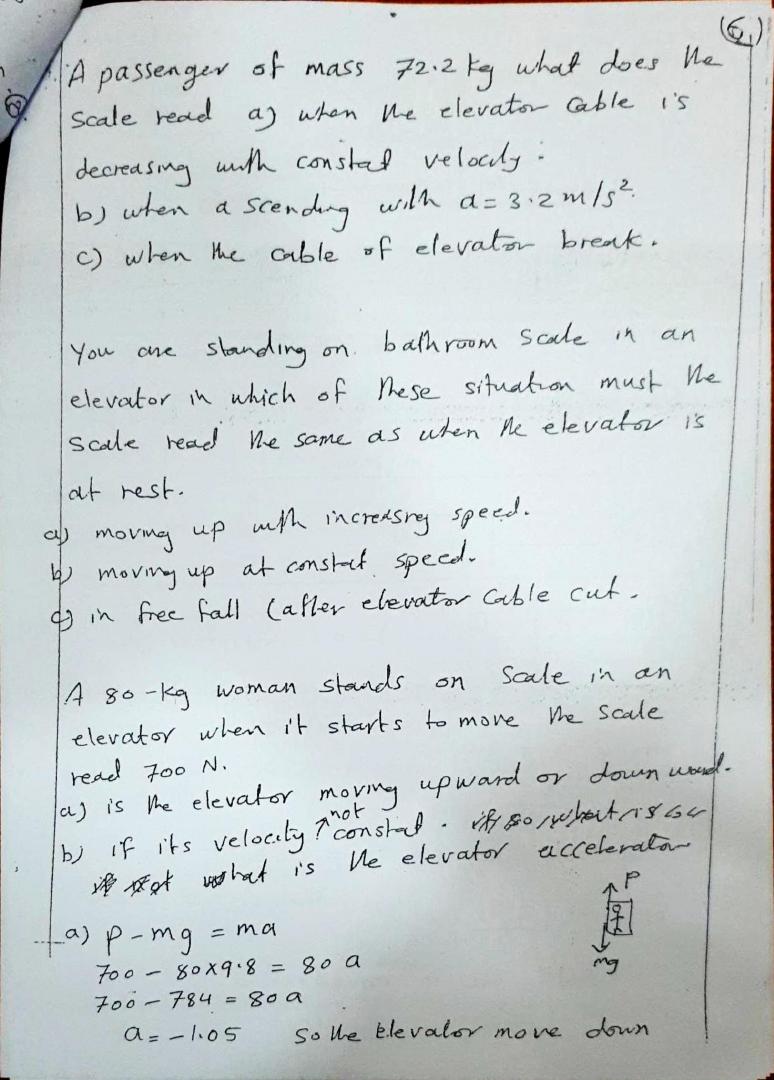 (6,)
A passenger of mass 72.2 kg what does the
Scale read a) when the elevator Cable is
decreasing with constat velocity.
b) when ascending with a = 3.2 m/s².
c) when the cable of elevator break.
You are standing on bathroom Scale in an
elevator in which of these situation must the
Scale read the same as when the elevator is
at rest.
a) moving up with increasing speed.
b) moving up at constat speed.
c) in free fall (after elevator Cable cut.
A 80-kg woman stands on Scale in an
elevator when it starts to move the Scale
read 700 N.
a) is the elevator moving upward or down ward.
b) if its velocity ↑ not constat.
what is the elevator acceleration
P
mg
a) P - mg = ma
700 - 80x9.8 = 80 a
700 - 784 = 80 a
a = -1.05 So the Elevator move down